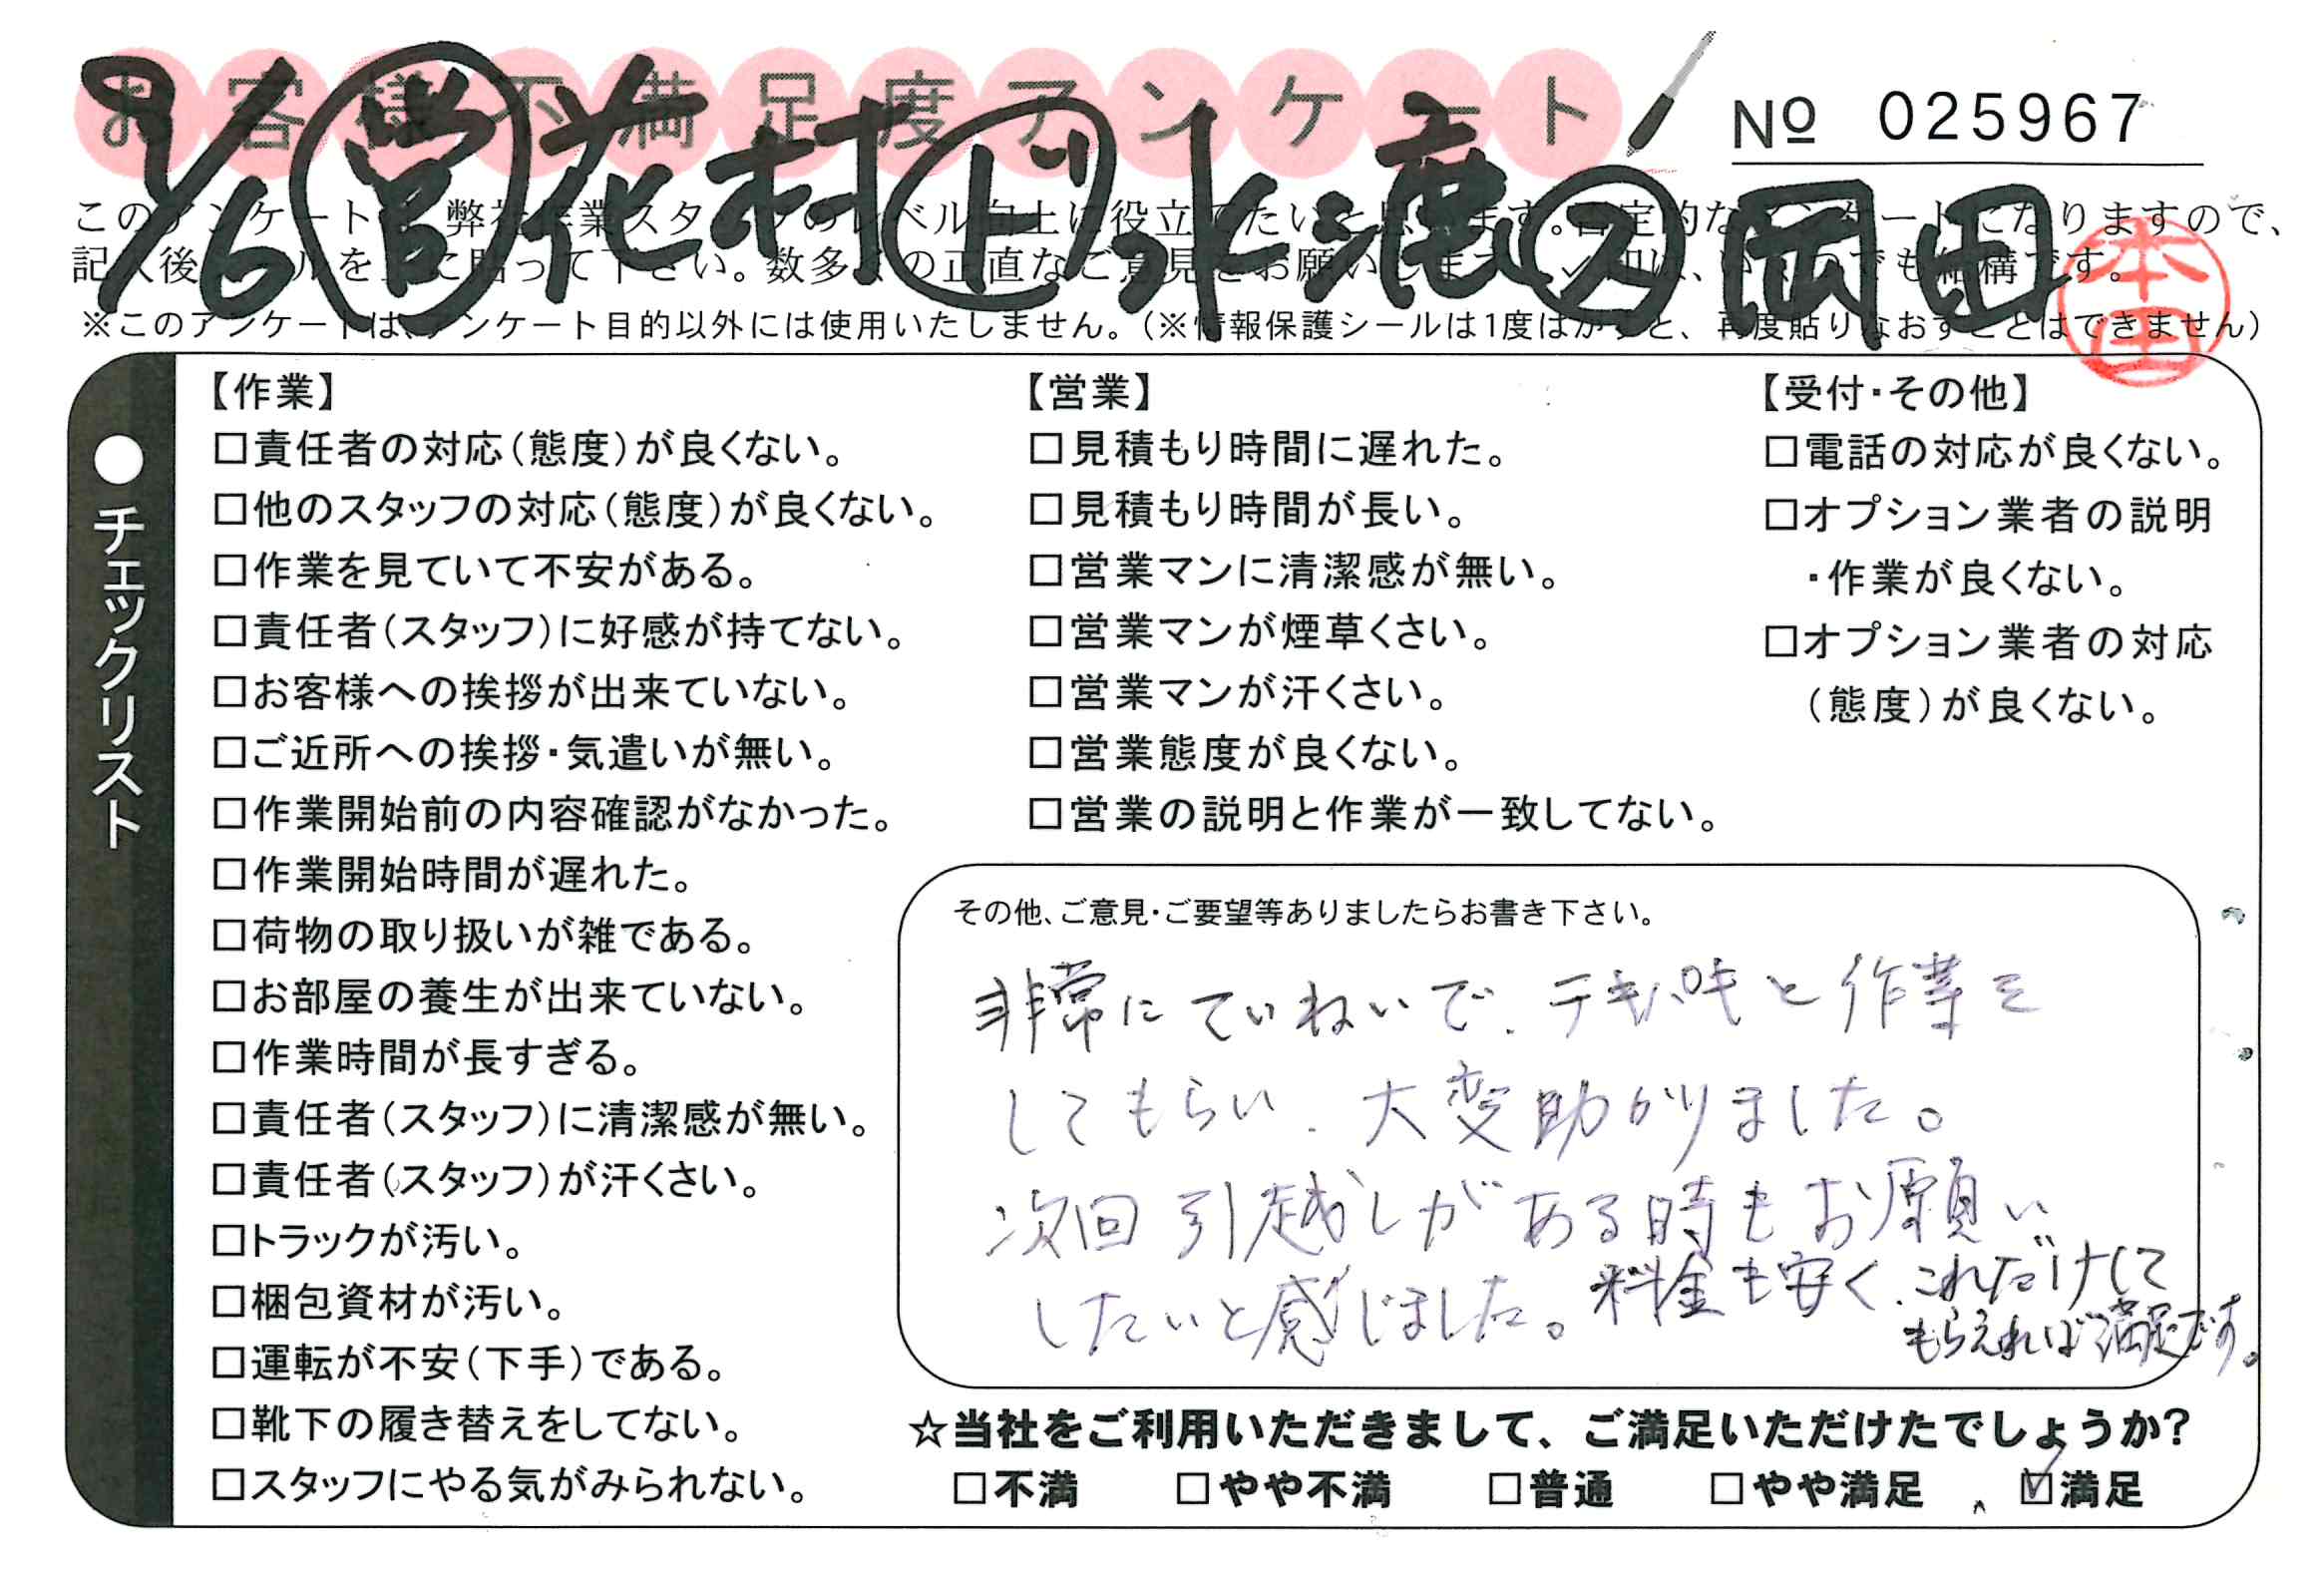 お客様不満足度アンケート
№ 025967
9/6 営 花村 ド 水滝 ス 岡田
本田
このアンケートは、弊社作業スタッフのレベル向上に役立てたいと思います。否定的なアンケートになりますので、
記入後シールを上に貼って下さい。数多くの正直なご意見をお願いします。✓印は、いくつでも結構です。
※このアンケートは、アンケート目的以外には使用いたしません。(※情報保護シールは1度はがすと、再度貼りなおすことはできません)
●チェックリスト
【作業】
□責任者の対応(態度)が良くない。
□他のスタッフの対応(態度)が良くない。
□作業を見ていて不安がある。
□責任者(スタッフ)に好感が持てない。
□お客様への挨拶が出来ていない。
□ご近所への挨拶・気遣いが無い。
□作業開始前の内容確認がなかった。
□作業開始時間が遅れた。
□荷物の取り扱いが雑である。
□お部屋の養生が出来ていない。
□作業時間が長すぎる。
□責任者(スタッフ)に清潔感が無い。
□責任者(スタッフ)が汗くさい。
□トラックが汚い。
□梱包資材が汚い。
□運転が不安(下手)である。
□靴下の履き替えをしてない。
□スタッフにやる気がみられない。
【営業】
□見積もり時間に遅れた。
□見積もり時間が長い。
□営業マンに清潔感が無い。
□営業マンが煙草くさい。
□営業マンが汗くさい。
□営業態度が良くない。
□営業の説明と作業が一致してない。
【受付・その他】
□電話の対応が良くない。
□オプション業者の説明
・作業が良くない。
□オプション業者の対応
(態度)が良くない。
その他、ご意見・ご要望等ありましたらお書き下さい。
非常にていねいで、テキパキと作業を
してもらい、大変助かりました。
次回引越しがある時もお願い
したいと感じました。料金も安く、これだけして
もらえれば満足です。
☆当社をご利用いただきまして、ご満足いただけたでしょうか?
□不満 □やや不満 □普通 □やや満足 ☑満足